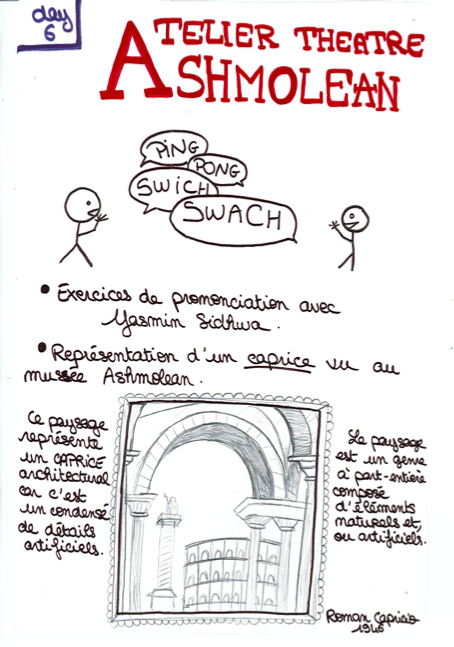 day
6
ATELIER THEATRE
ASHMOLEAN
PING
PONG
SWiCH
SWACH
• Exercices de prononciation avec
Yasmin Sidhwa.
• Représentation d'un caprice vu au
musée Ashmolean.
Ce paysage
représente
un CAPRICE
architectural
car c'est
un condensé
de détails
artificiels.
Le paysage
est un genre
à part-entière
composé
d'éléments
naturels et,
ou artificiels.
Roman Capricio